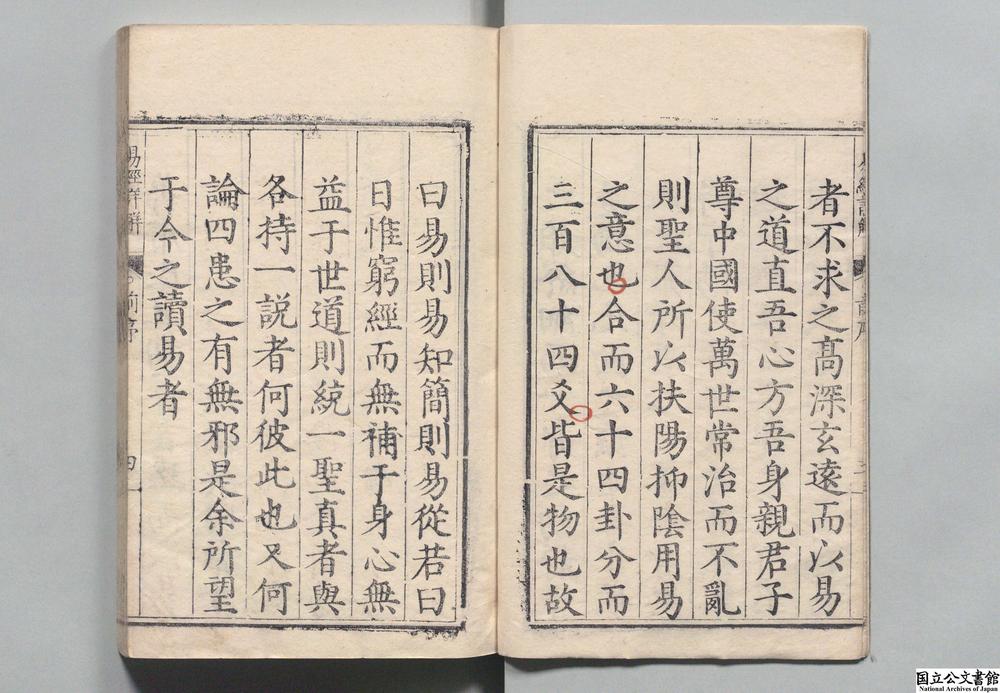 者不求之高深玄遠而以易
之道直吾心方吾身親君子
尊中國使萬世常治而不亂
則聖人所以扶陽抑陰用易
之意也合而六十四卦分而
三百八十四爻皆是物也故
曰易則易知簡則易從若曰
日惟窮經而無補于身心無
益于世道則統一聖真者與
各持一說者何彼此也又何
論四患之有無邪是余所望
于今之讀易者
易經詳解
前序
四
国立公文書館
National Archives of Japan